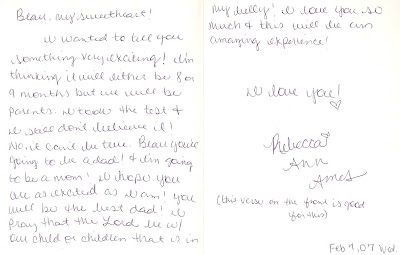 Beau, my sweetheart!
I wanted to tell you
something very exciting! I'm
thinking it will either be 8 or
9 months but we will be
parents. I took the test &
I still don't believe it!
No, it can't be true. Beau you're
going to be a dad! & I'm going
to be a mom! I hope you
are as excited as I am! You
will be the best dad! I
pray that the Lord be w/
our child or children that is in
my belly! I love you so
much & this will be an
amazing experience!
I love you!
Rebecca
Ann
Ames
(this verse on the front is good
for this)
Feb 7, 07 Wed.